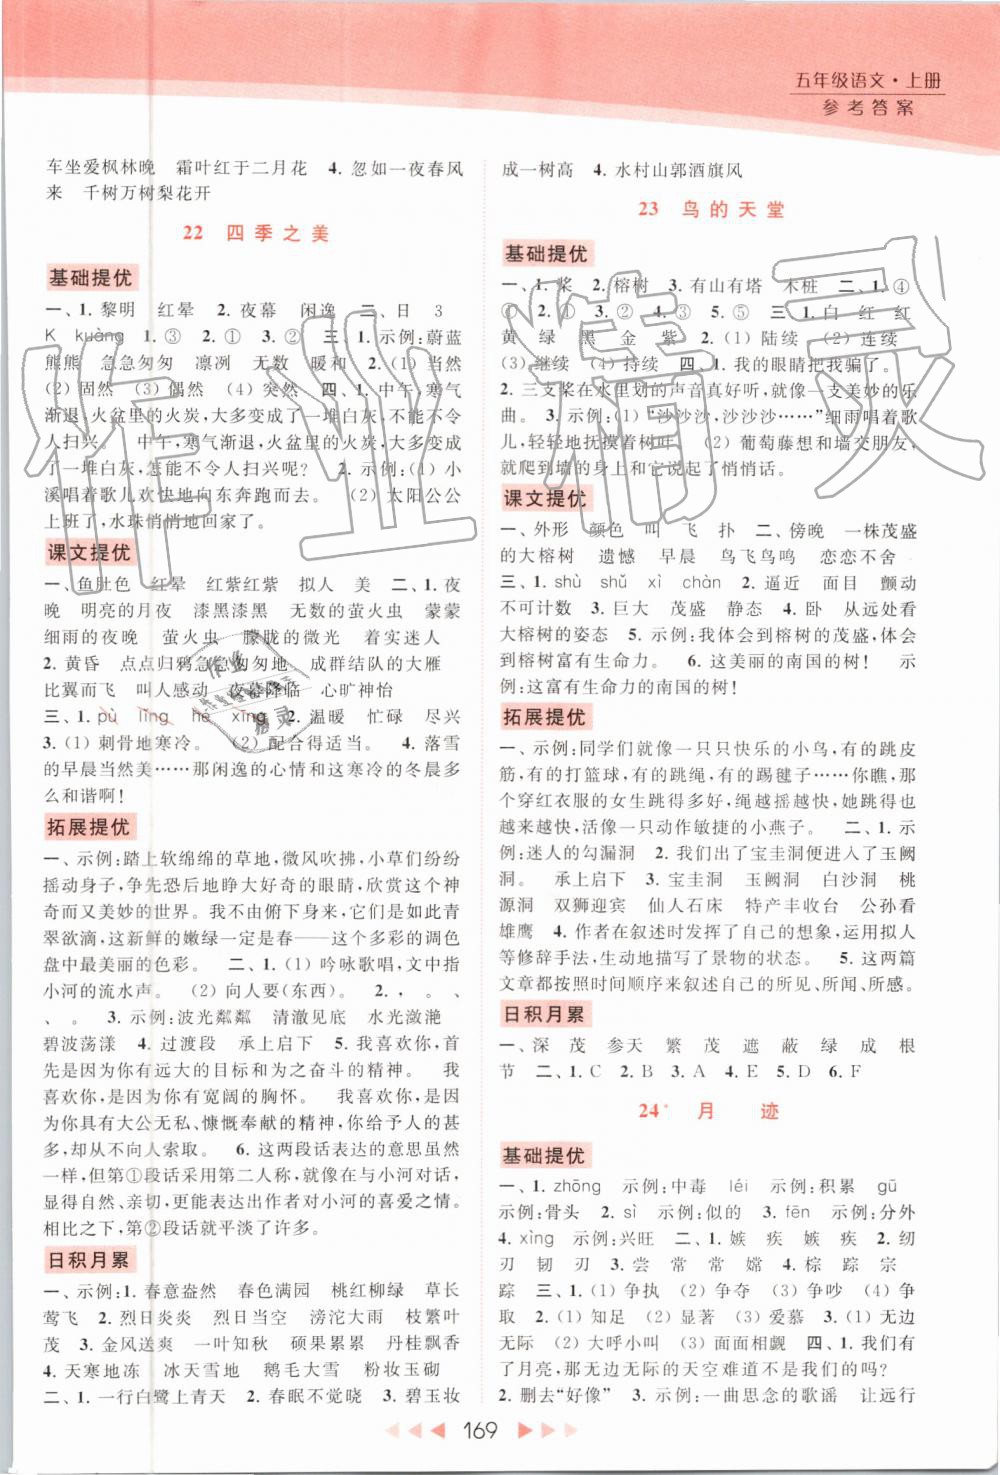 五年级语文·上册
参考答案
车坐爱枫林晚 霜叶红于二月花 4. 忽如一夜春风
来 千树万树梨花开
22 四季之美
基础提优
一、1. 黎明 红晕 2. 夜幕 闲逸 二、日 3
K kuàng 1. ③ 2. ① 3. ② 三、1. 示例:蔚蓝
熊熊 急急匆匆 凛冽 无数 暖和 2. (1) 当然
(2) 固然 (3) 偶然 (4) 突然 四、1. 中午,寒气
渐退,火盆里的火炭,大多变成了一堆白灰,不能不令
人扫兴。 中午,寒气渐退,火盆里的火炭,大多变成
了一堆白灰,怎能不令人扫兴呢? 2. 示例:(1) 小
溪唱着歌儿欢快地向东奔跑而去。 (2) 太阳公公
上班了,水珠悄悄地回家了。
课文提优
一、鱼肚色 红晕 红紫红紫 拟人 美 二、1. 夜
晚 明亮的月夜 漆黑漆黑 无数的萤火虫 蒙蒙
细雨的夜晚 萤火虫 朦胧的微光 着实迷人
2. 黄昏 点点归鸦急急匆匆地 成群结队的大雁
比翼而飞 叫人感动 夜幕降临 心旷神怡
三、1. pù lǐng hé xīng 2. 温暖 忙碌 尽兴
3. (1) 刺骨地寒冷。 (2) 配合得适当。 4. 落雪
的早晨当然美……那闲逸的心情和这寒冷的冬晨多
么和谐啊!
拓展提优
一、示例:踏上软绵绵的草地,微风吹拂,小草们纷纷
摇动身子,争先恐后地睁大好奇的眼睛,欣赏这个神
奇而又美妙的世界。我不由俯下身来,它们是如此青
翠欲滴,这新鲜的嫩绿一定是春——这个多彩的调色
盘中最美丽的色彩。 二、1. (1) 吟咏歌唱,文中指
小河的流水声。 (2) 向人要(东西)。 2. , 。 、
、 。 3. 示例:波光粼粼 清澈见底 水光潋滟
碧波荡漾 4. 过渡段 承上启下 5. 我喜欢你,首
先是因为你有远大的目标和为之奋斗的精神。 我
喜欢你,是因为你有宽阔的胸怀。 我喜欢你,是因为
你具有大公无私、慷慨奉献的精神,你给予人的很多,
却从不向人索取。 6. 这两段话表达的意思虽然
一样,但第①段话采用第二人称,就像在与小河对话,
显得自然、亲切,更能表达出作者对小河的喜爱之情。
相比之下,第②段话就平淡了许多。
日积月累
一、示例:1. 春意盎然 春色满园 桃红柳绿 草长
莺飞 2. 烈日炎炎 烈日当空 滂沱大雨 枝繁叶
茂 3. 金风送爽 一叶知秋 硕果累累 丹桂飘香
4. 天寒地冻 冰天雪地 鹅毛大雪 粉妆玉砌
二、1. 一行白鹭上青天 2. 春眠不觉晓 3. 碧玉妆
成一树高 4. 水村山郭酒旗风
23 鸟的天堂
基础提优
一、1. 桨 2. 榕树 3. 有山有塔 木桩 二、1. ④
① 2. ① ② 3. ② 4. ③ 5. ⑤ 三、1. 白 红 红
黄 绿 黑 金 紫 2. (1) 陆续 (2) 连续
(3) 继续 (4) 持续 四、1. 我的眼睛把我骗了。
2. 三支桨在水里划的声音真好听,就像一支美妙的乐
曲。 3. 示例:(1) “沙沙沙,沙沙沙……”细雨唱着歌
儿,轻轻地抚摸着树叶。 (2) 葡萄藤想和墙交朋友,
就爬到墙的身上和它说起了悄悄话。
课文提优
一、外形 颜色 叫 飞 扑 二、傍晚 一株茂盛
的大榕树 遗憾 早晨 鸟飞鸟鸣 恋恋不舍
三、1. shù shǔ xì chàn 2. 逼近 面目 颤动
不可计数 3. 巨大 茂盛 静态 4. 卧 从远处看
大榕树的姿态 5. 示例:我体会到榕树的茂盛,体会
到榕树富有生命力。 6. 这美丽的南国的树! 示
例:这富有生命力的南国的树!
拓展提优
一、示例:同学们就像一只只快乐的小鸟,有的跳皮
筋,有的打篮球,有的跳绳,有的踢毽子……你瞧,那
个穿红衣服的女生跳得多好,绳越摇越快,她跳得也
越来越快,活像一只动作敏捷的小燕子。 二、1. 示
例:迷人的勾漏洞 2. 我们出了宝圭洞又进入了玉阙
洞。 承上启下 3. 宝圭洞 玉阙洞 白沙洞 桃
源洞 双狮迎宾 仙人石床 特产丰收台 公孙看
雄鹰 4. 作者在叙述时发挥了自己的想象,运用拟人
等修辞手法,生动地描写了景物的状态。 5. 这两篇
文章都按照时间顺序来叙述自己的所见、所闻、所感。
日积月累
一、深 茂 参天 繁 茂 遮 蔽 绿 成 根
节 二、1. C 2. B 3. A 4. D 5. E 6. F
24* 月 迹
基础提优
一、1. zhōng 示例:中毒 léi 示例:积累 gū
示例:骨头 2. sì 示例:似的 3. fēn 示例:分外
4. xìng 示例:兴旺 二、1. 嫉 疾 嫉 疾 2. 纫
刃 韧 刃 3. 尝 常 常 嫦 4. 棕 踪 宗
踪 三、1. (1) 争执 (2) 争夺 (3) 争吵 (4) 争
取 2. (1) 知足 (2) 显著 (3) 爱慕 3. (1) 无边
无际 (2) 大呼小叫 (3) 面面相觑 四、1. 我们有
了月亮,那无边无际的天空难道不是我们的吗?
2. 删去“好像” 3. 示例:一曲思念的歌谣 让远行
169
作业精灵